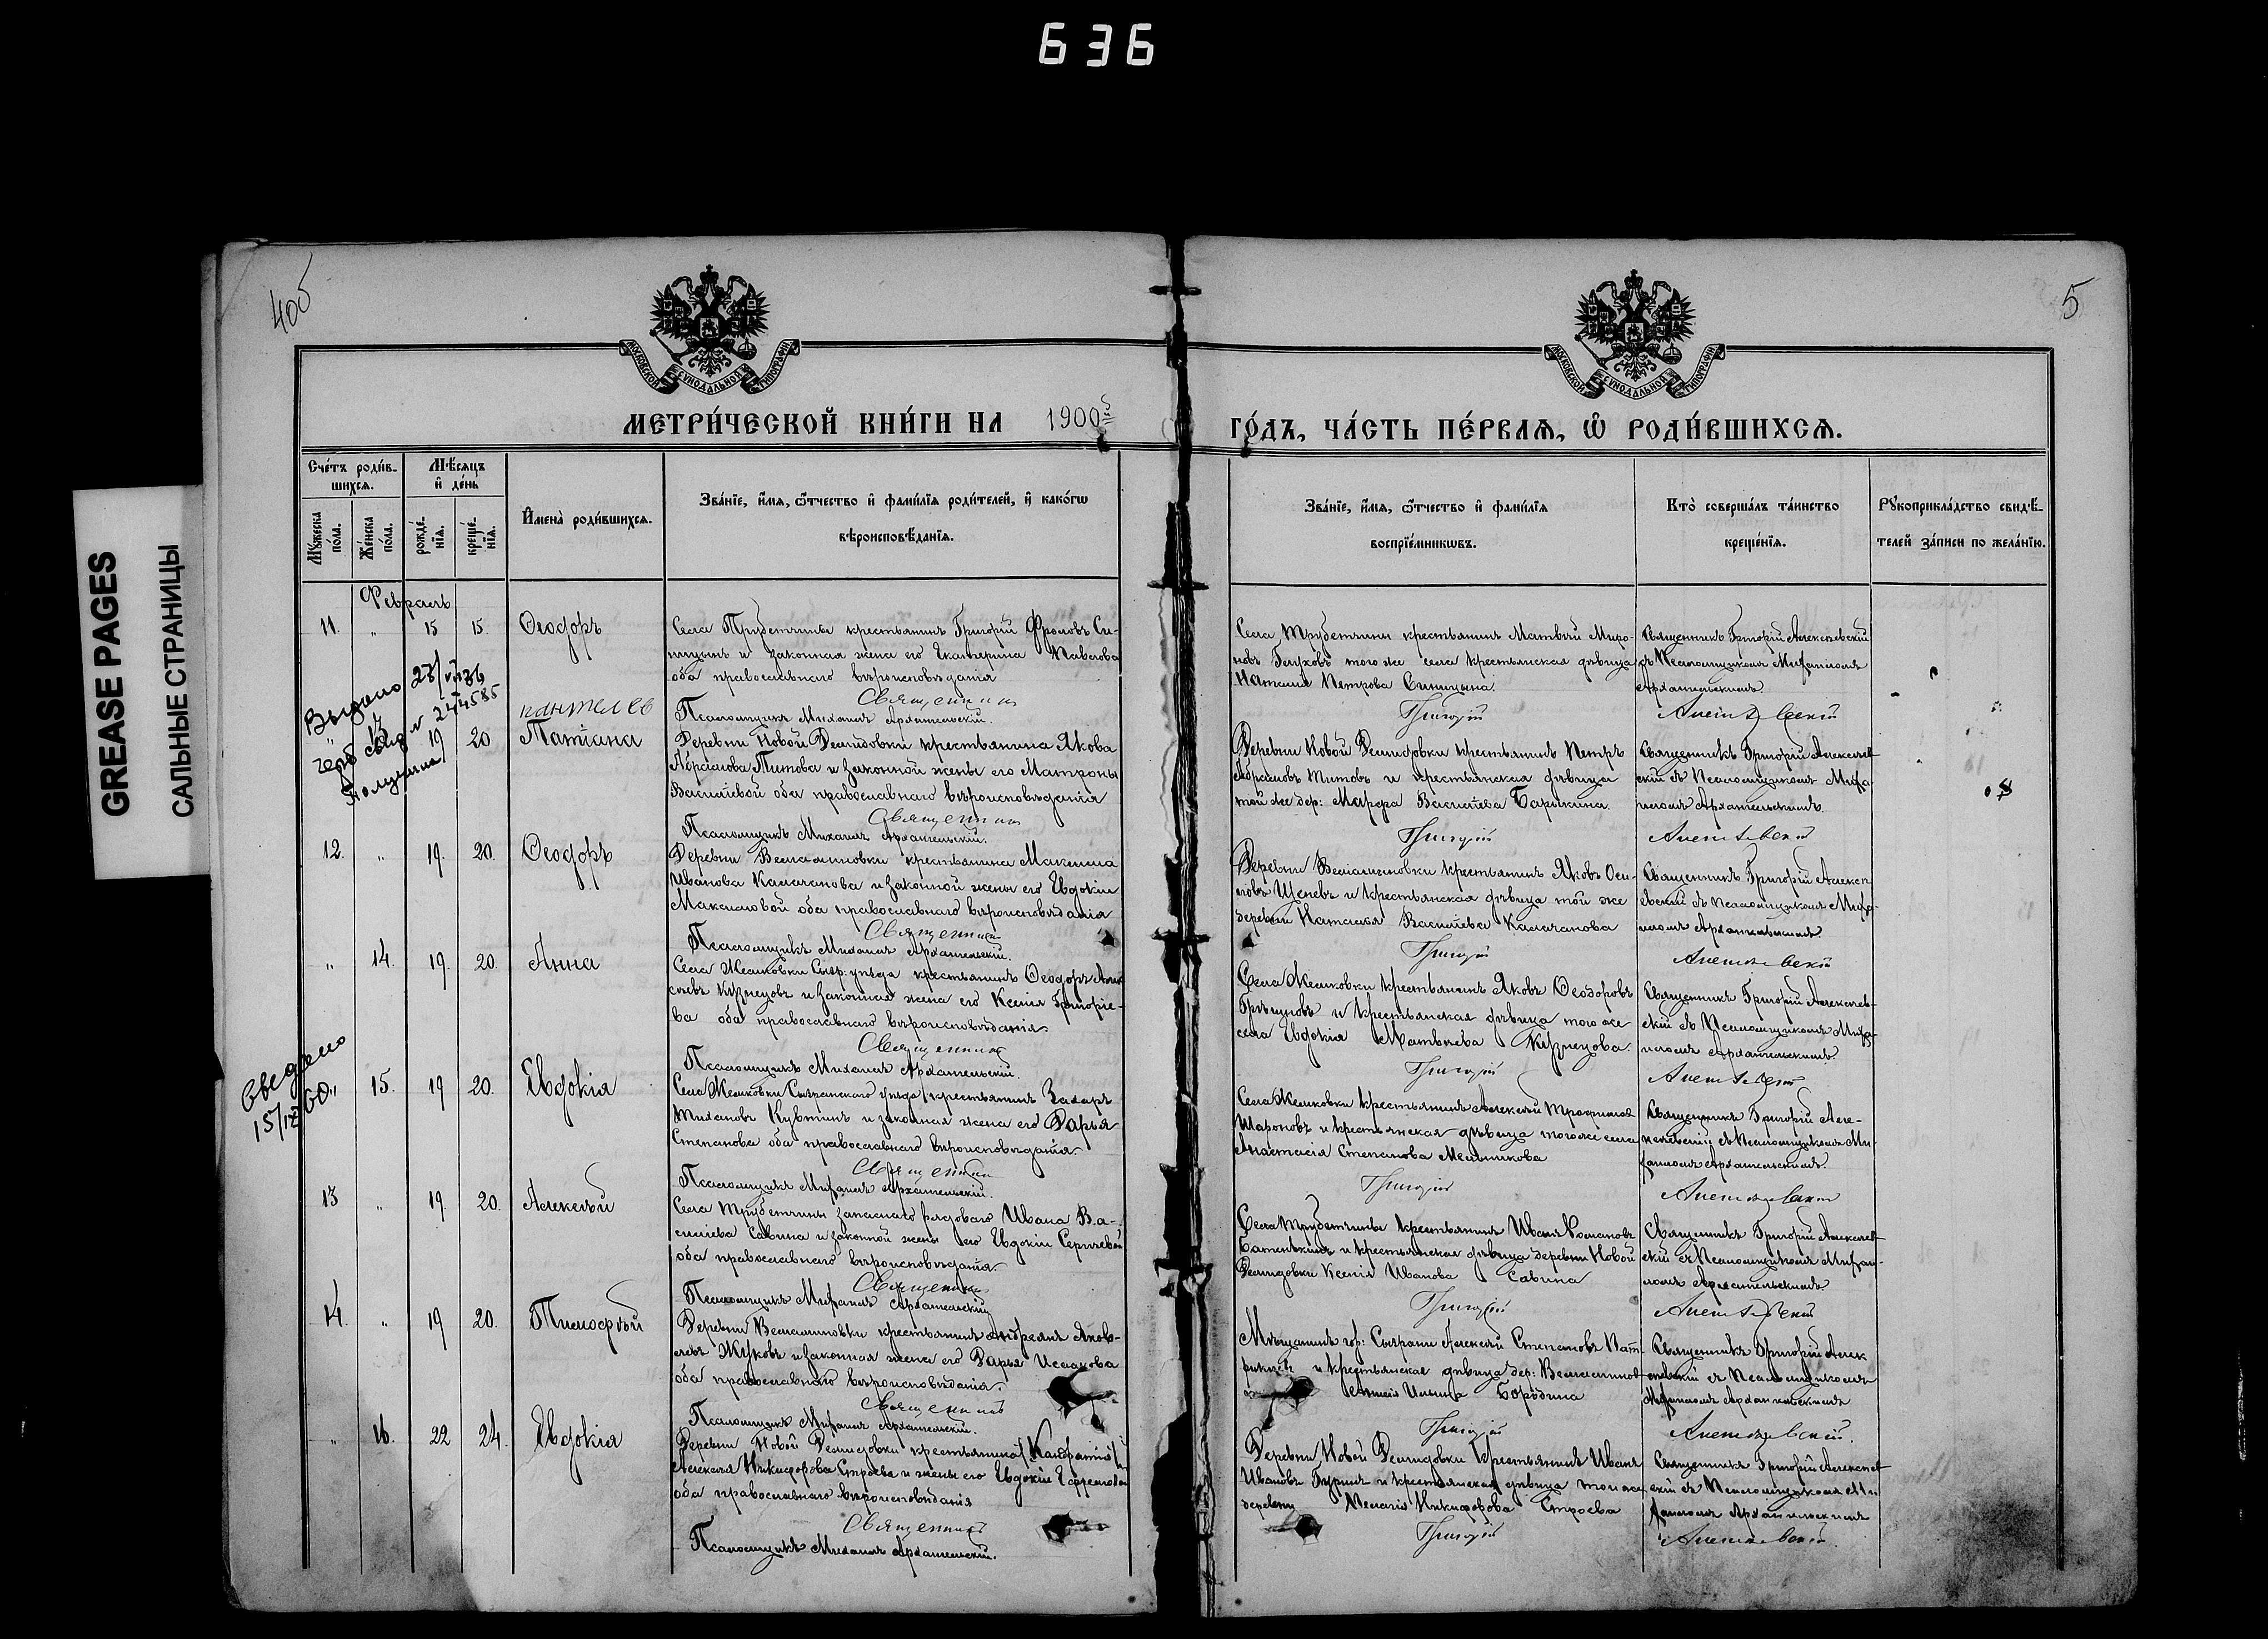 636
GREASE PAGES
САЛЬНЫЕ СТРАНИЦЫ
4об
5
МОСКОВСКОЙ СѴНОДАЛЬНОЙ ТИПОГРАФІИ
МОСКОВСКОЙ СѴНОДАЛЬНОЙ ТИПОГРАФІИ
МЕТРИ́ЧЕСКОЙ КНИ́ГИ НА 1900й
ГО́ДЪ, ЧА́СТЬ ПЕ́РВАѦ, Ѽ РОДИ́ВШИХСѦ.
Счéтъ роди́в-
шихся.
Мѣ́сяцъ
и҆ дéнь
Мꙋ́жеска
пóла.
Жéнска
пóла.
рождé-
нїя.
крещé-
нїя.
И҆менà роди́вшихся.
Звáнїе, и҆́мя, ѻ҆́тчество и҆ фами́лїя роди́телей, и҆ какóгѡ
вѣроисповѣ́данїя.
Звáнїе, и҆́мя, ѻ҆́тчество и҆ фами́лїя
воспрїéмникѡвъ.
Ктò совершáлъ тáинство
крещéнїя.
Рꙋкоприклáдство свидѣ́-
телей зáписи по желáнїю.
Февраль
11. " 15 15. Ѳеодоръ
Села Трубетчины крестьянинъ Григорій Фроловъ Си-
ницынъ и законная жена его Екатерина Павлова
оба православнаго вѣроисповѣданія
Священникъ
Псаломщикъ Михаилъ Архангельскій.
Села Трубетчины крестьянинъ Матвѣй Миро-
новъ Глуховъ того же села крестьянская дѣвица
Наталія Петрова Синицына.
Григорій
Священникъ Григорій Алексѣевскій
съ Псаломщикомъ Михаиломъ
Архангельскимъ.
Алексѣевскій
Выдано
" 13 19 20 Татіана
Деревни Новой Демидовки крестьянина Якова
Абрамова Титова и законной жены его Матроны
Василіевой оба православнаго вѣроисповѣданія
Священникъ
Псаломщикъ Михаилъ Архангельскій.
Деревни Новой Демидовки крестьянинъ Петръ
Абрамовъ Титовъ и крестьянская дѣвица
той же дер: Марфа Василіева Барыкина.
Григорій
Священникъ Григорій Алексѣев-
скій съ Псаломщикомъ Миха-
иломъ Архангельскимъ.
Алексѣевскій
12. " 19. 20. Ѳеодоръ
Деревни Веніаминовки крестьянина Максима
Иванова Калачанова и законной жены его Евдокіи
Максимовой оба православнаго вѣроисповѣданія
Священникъ
Псаломщикъ Михаилъ Архангельскій.
Деревни Веніаминовки крестьянинъ Яковъ Оси-
повъ и крестьянская дѣвица той же
деревни Наталья Василіева Калачанова
Григорій
Священникъ Григорій Алексѣ-
евскій съ Псаломщикомъ Миха-
иломъ Архангельскимъ.
Алексѣевскій
" 14. 19. 20. Анна
Села Жемковки Сызр: уѣзда крестьянинъ Ѳеодоръ Алек-
сѣевъ Кузнецовъ и законная жена его Ксенія Григоріе-
ва оба православнаго вѣроисповѣданія.
Священникъ
Псаломщикъ Михаилъ Архангельскій.
Села Жемковки крестьянинъ Яковъ Ѳеодоровъ
и крестьянская дѣвица того же
села Евдокія Матвѣева Кузнецова.
Григорій
Священникъ Григорій Алексѣев-
скій съ Псаломщикомъ Миха-
иломъ Архангельскимъ.
Алексѣевскій
" 15. 19 20. Евдокія
Села Жемковки Сызранскаго уѣзда крестьянинъ Захаръ
Тихановъ и законная жена его Дарья
Степанова оба православнаго вѣроисповѣданія.
Священникъ
Псаломщикъ Михаилъ Архангельскій.
Села Жемковки крестьянинъ Алексѣй Трофимовъ
Шароновъ и крестьянская дѣвица того же села
Анастасія Степанова Мельникова
Григорій
Священникъ Григорій Алек-
сѣевскій съ Псаломщикомъ Ми-
хаиломъ Архангельскимъ.
Алексѣевскій
13 " 19. 20. Алексѣй
Села Трубетчины запаснаго рядоваго Ивана Ва-
силіева Савина и законной жены его Евдокіи Сергѣевой
оба православнаго вѣроисповѣданія.
Священникъ
Псаломщикъ Михаилъ Архангельскій
Села Трубетчины крестьянинъ Иванъ Романовъ
и крестьянская дѣвица деревни Новой
Демидовки Ксенія Иванова Савина
Григорій
Священникъ Григорій Алексѣев-
скій съ Псаломщикомъ Михаи-
ломъ Архангельскимъ.
Алексѣевскій
14. " 19 20. Тимофѣй
Деревни Веніаминовки крестьянинъ Андреянъ Яков-
левъ Жуковъ и законная жена его Дарья Исаакова
оба православнаго вѣроисповѣданія.
Священникъ
Псаломщикъ Михаилъ Архангельскій.
Мѣщанинъ гор: Сызрани Алексѣй Степановъ Пат-
рикѣевъ и крестьянская дѣвица дер: Веніаминов-
Ильина Бородина
Григорій
Священникъ Григорій Алек-
сѣевскій съ Псаломщикомъ
Михаиломъ Архангельскимъ
Алексѣевскій.
" 16. 22 24. Евдокія
Деревни Новой Демидовки крестьянина
Алексѣя Никифорова Строева и жены его Евдокіи Ефремовой
оба православнаго вѣроисповѣданія
Священникъ
Псаломщикъ Михаилъ Архангельскій.
Деревни Новой Демидовки крестьянинъ Иванъ
Ивановъ и крестьянская дѣвица той же
деревни Меланія Никифорова Строева
Григорій
Священникъ Григорій Алексѣев-
скій съ Псаломщикомъ Ми-
хаиломъ Архангельскимъ
Алексѣевскій.